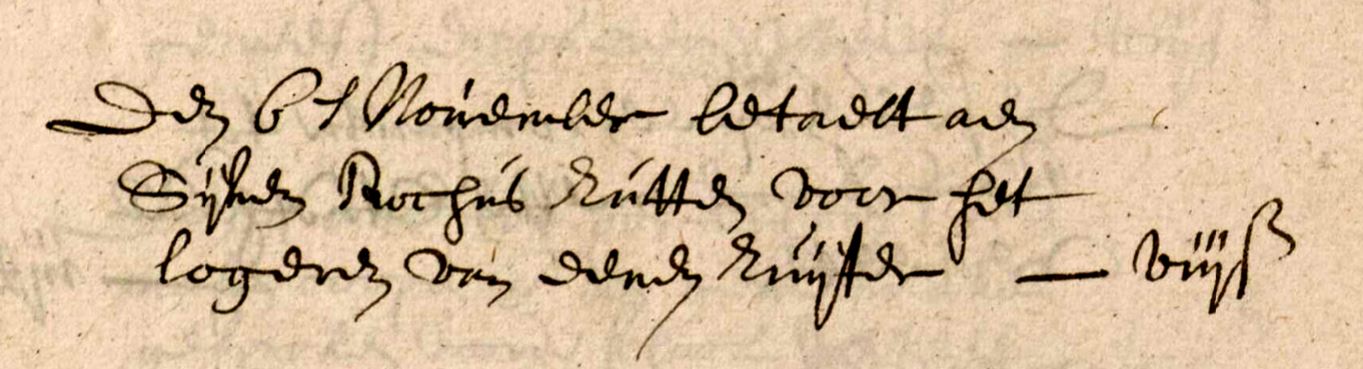 Den 6 t November betaelt aen
Sijmen Rochus Rutten voor het
logeren van eenen Ruijter — viijß